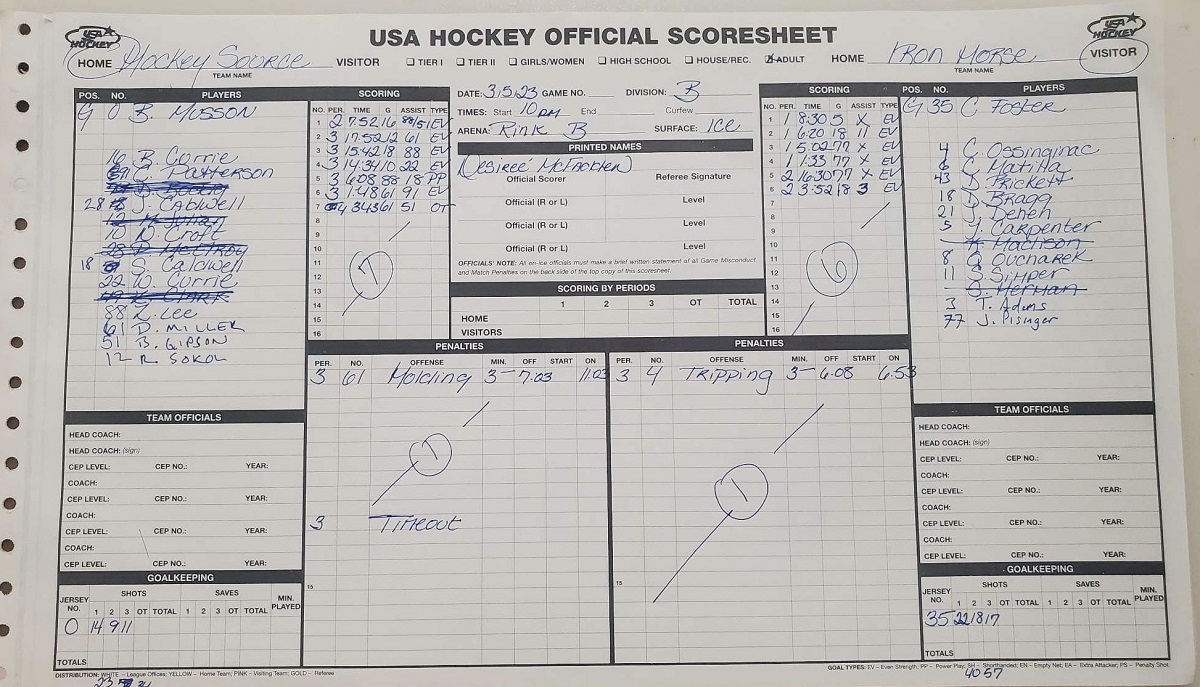 USA HOCKEY OFFICIAL SCORESHEET
USA HOCKEY
USA HOCKEY
HOME Hockey Source VISITOR TIER I TIER II GIRLS/WOMEN HIGH SCHOOL HOUSE/REC. ADULT HOME Iron Horse VISITOR
TEAM NAME
TEAM NAME
POS. NO. PLAYERS
G 0 B. Musson
16 B. Currie
C. Patterson
28 J. Cabwell
10 D. Croft
18 S. Caldwell
22 W. Currie
88 Z. Lee
61 D. MILLER
51 B. GIPSON
12 R. SOKOL
SCORING
NO. PER. TIME G ASSIST TYPE
1 2 7:52 16 88/51 EV
2 3 17:52 12 61 EV
3 3 15:42 18 88 EV
4 3 14:34 10 22 EV
5 3 6:08 88 18 PP
6 3 1:48 61 91 EV
7 4 3:43 61 51 OT
8
9
10
11
12
13
14
15
16
7
DATE: 3.5.23 GAME NO. DIVISION: B
TIMES: Start 10 pm End Curfew
ARENA: Rink B SURFACE: Ice
PRINTED NAMES
Desireé McFadden
Official Scorer Referee Signature
Official (R or L) Level
Official (R or L) Level
Official (R or L) Level
OFFICIALS' NOTE: All on-ice officials must make a brief written statement of all Game Misconduct
and Match Penalties on the back side of the top copy of this scoresheet.
SCORING BY PERIODS
1 2 3 OT TOTAL
HOME
VISITORS
SCORING
NO. PER. TIME G ASSIST TYPE
1 1 8:30 5 X EV
2 1 6:20 18 11 EV
3 1 5:02 77 X EV
4 1 1:33 77 X EV
5 2 16:30 77 X EV
6 2 3:52 18 3 EV
7
8
9
10
11
12
13
14
15
16
6
POS. NO. PLAYERS
G 35 C. Foster
4 C. Ossinginac
6 C. Matilla
43 D. Prickett
18 D. Bragg
21 J. Deneh
5 Y. Carpenter
K. Madison
8 Q. Ovcharek
11 S. Simper
B. Herman
3 T. Adams
77 J. Pisinger
PENALTIES
PER. NO. OFFENSE MIN. OFF START ON
3 61 Holding 3 7:03 11:03
1
3 Timeout
15
PENALTIES
PER. NO. OFFENSE MIN. OFF START ON
3 4 Tripping 3 6:08 6:53
1
15
TEAM OFFICIALS
HEAD COACH:
HEAD COACH: (sign)
CEP LEVEL: CEP NO.: YEAR:
COACH:
CEP LEVEL: CEP NO.: YEAR:
COACH:
CEP LEVEL: CEP NO.: YEAR:
COACH:
CEP LEVEL: CEP NO.: YEAR:
GOALKEEPING
JERSEY NO. SHOTS SAVES MIN. PLAYED
1 2 3 OT TOTAL 1 2 3 OT TOTAL
0 14 9 11
TOTALS
TEAM OFFICIALS
HEAD COACH:
HEAD COACH: (sign)
CEP LEVEL: CEP NO.: YEAR:
COACH:
CEP LEVEL: CEP NO.: YEAR:
COACH:
CEP LEVEL: CEP NO.: YEAR:
COACH:
CEP LEVEL: CEP NO.: YEAR:
GOALKEEPING
JERSEY NO. SHOTS SAVES MIN. PLAYED
1 2 3 OT TOTAL 1 2 3 OT TOTAL
35 22 18 17
TOTALS
DISTRIBUTION: WHITE – League Offices; YELLOW – Home Team; PINK – Visiting Team; GOLD – Referee
GOAL TYPES: EV – Even Strength; PP – Power Play; SH – Shorthanded; EN – Empty Net; EA – Extra Attacker; PS – Penalty Shot
23 34
40 57